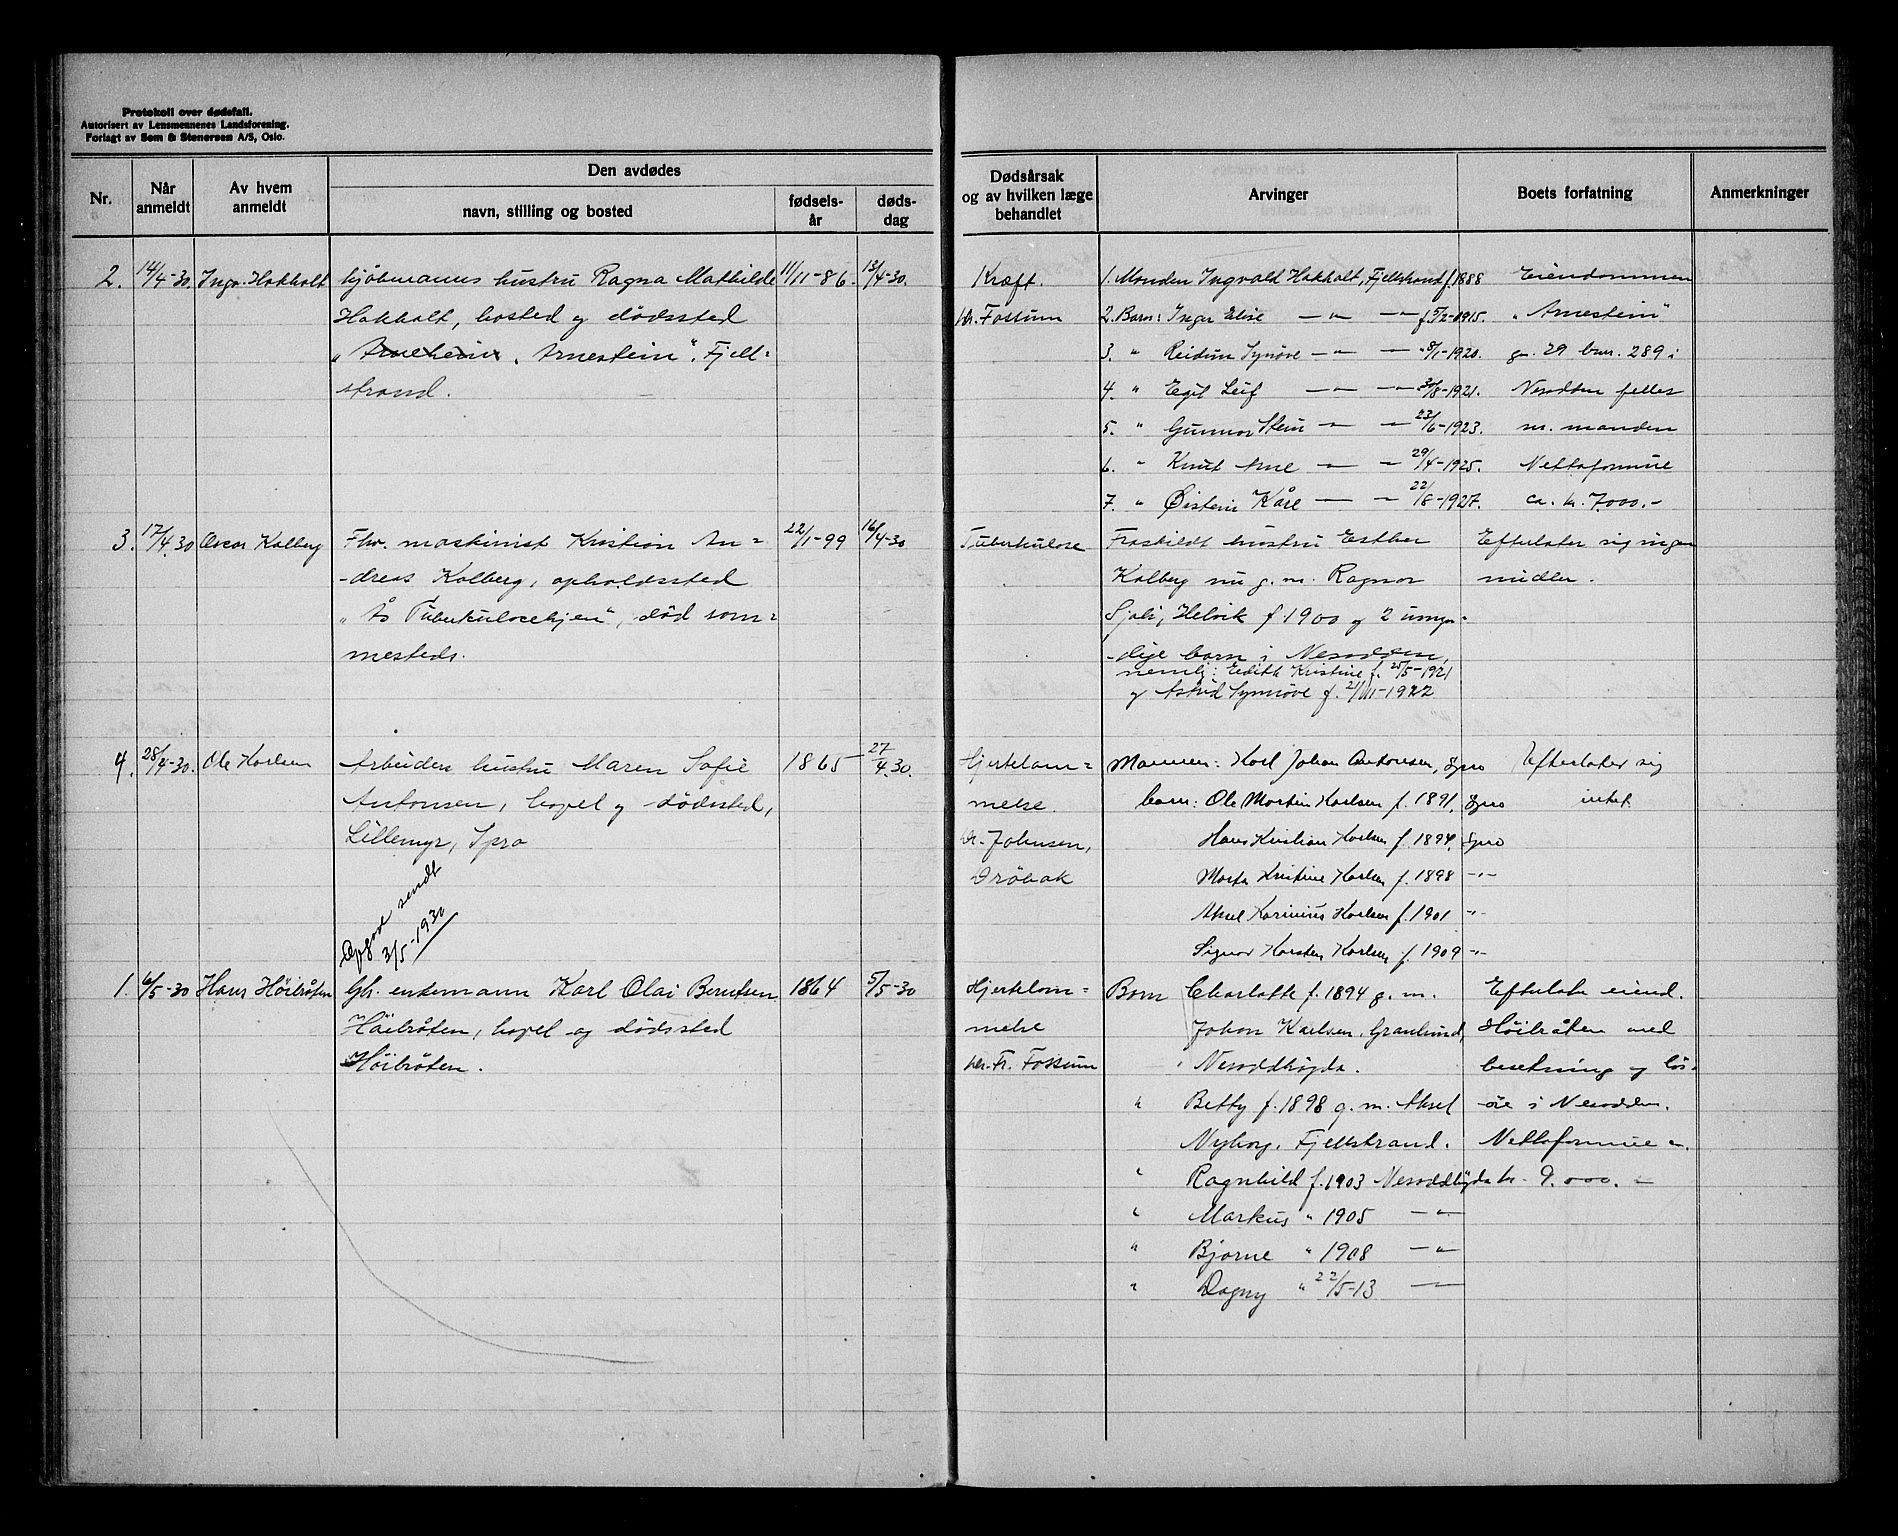 Protokoll over dødsfall.
Autorisert av Lensmennenes Landsforening.
Forlagt av Sem & Stenersen A/S, Oslo.
Nr.
Når anmeldt
Av hvem anmeldt
Den avdødes
navn, stilling og bosted
fødsels-år
døds-dag
Dødsårsak og av hvilken læge behandlet
Arvinger
Boets forfatning
Anmerkninger
2. 14/4-30. Ingv. Hakholt
kjøbmanns hustru Ragna Mathilde 11/11-86. 13/4-30.
Hakholt, bosted og dødssted
"Arneheim, Arnestein", Fjell=
strand.
Kræft.
dr. Fossum
1. Manden Ingvald Hakholt, Fjellstrand f. 1888
2. Barn: Inger Elise — " — f 5/2-1915.
3. " Reidun Synøve — " — 8/1-1920.
4. " Egil Leif — " — 30/8-1921.
5. " Gunnar Stein — " — 23/6-1923.
6. " Knut Arne — " — 29/4-1925.
7. " Øistein Kåre — " — 22/8-1927.
Eiendommen
"Arnestein"
g. 29 bnr. 289 i
Nesodden felles
m. manden
Nettoformue
ca. kr. 7000.-
3. 17/4.30 Oscar Kolberg
Fhv. maskinist Kristian An= 22/1-99 16/4-30
-dreas Kolberg, opholdssted
"Ås Tuberkulosehjem", død sam=
mesteds.
Tuberkulose
Fraskildt hustru Esther
Kolberg nu g. m. Ragnar
Sjøli, Helvik f 1900 og 2 umyn=
-dige barn i Nesodden,
nemlig: Edith Kristine f. 25/5-1921
og Astrid Synnøve f. 21/11-1922
Efterlater sig ingen
midler.
4. 28/4-30. Ole Karlsen
Arbeider hustru Maren Sofie 1865 27/4.30.
Antonsen, bopel og dødssted,
Lillemyr, Spro
Opgave sendt
3/5-1930
Hjertelam=
melse.
dr. Johnsen,
Drøbak
Mannen: Karl Johan Antonsen, Spro
barn: Ole Martin Karlsen f. 1891, Spro
Hans Kristian Karlsen f. 1894, Spro
Marta Kristine Karlsen f. 1898 -"-
Aksel Karinius Karlsen f. 1901 -"-
Signar Karsten Karlsen f. 1909 -"-
Efterlater sig
intet.
1. 6/5-30 Hans Höibråten
Gbr. enkemann Karl Olai Berntsen 1864 5/5-30
Höibråten, bopel og dødssted
Höibråten.
Hjertelam=
melse
dr. Fr. Fossum
Barn Charlotte f. 1894 g. m.
Johan Karlsen, Granlund,
Nesoddhøgda.
" Betty f. 1898 g. m. Aksel
Nyborg, Fjellstrand.
" Ragnhild f. 1903 Nesoddhøgda
" Markus " 1905 — " —
" Bjarne " 1908 — " —
" Dagny " 22/5-13 — " —
Efterlater eiend.
Höibråten med
besetning og løs-
øre i Nesodden.
Nettoformue ca.
kr. 9.000.-